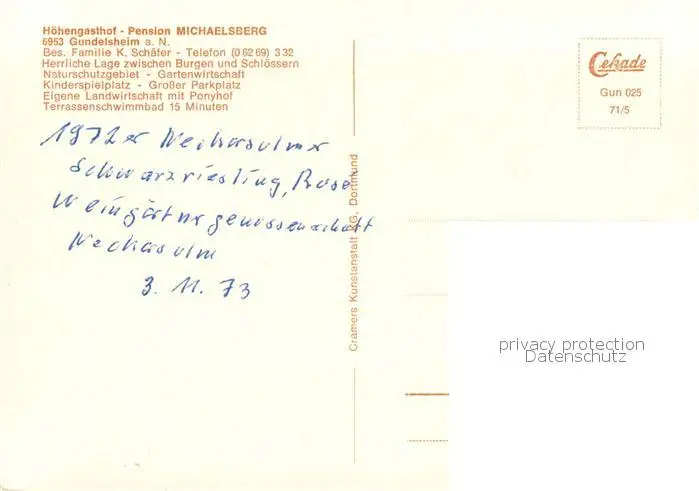 Höhengasthof - Pension MICHAELSBERG
6953 Gundelsheim a. N.
Bes. Familie K. Schäfer - Telefon (0 62 69) 3 32
Herrliche Lage zwischen Burgen und Schlössern
Naturschutzgebiet - Gartenwirtschaft
Kinderspielplatz - Großer Parkplatz
Eigene Landwirtschaft mit Ponyhof
Terrassenschwimmbad 15 Minuten
Cekade
Gun 025
71/5
1972er Neckarsulmer
Schwarzriesling, Rosé
Weingärtnergenossenschaft
Neckarsulm
3. 11. 73
Cramers Kunstanstalt KG, Dortmund
privacy protection
Datenschutz